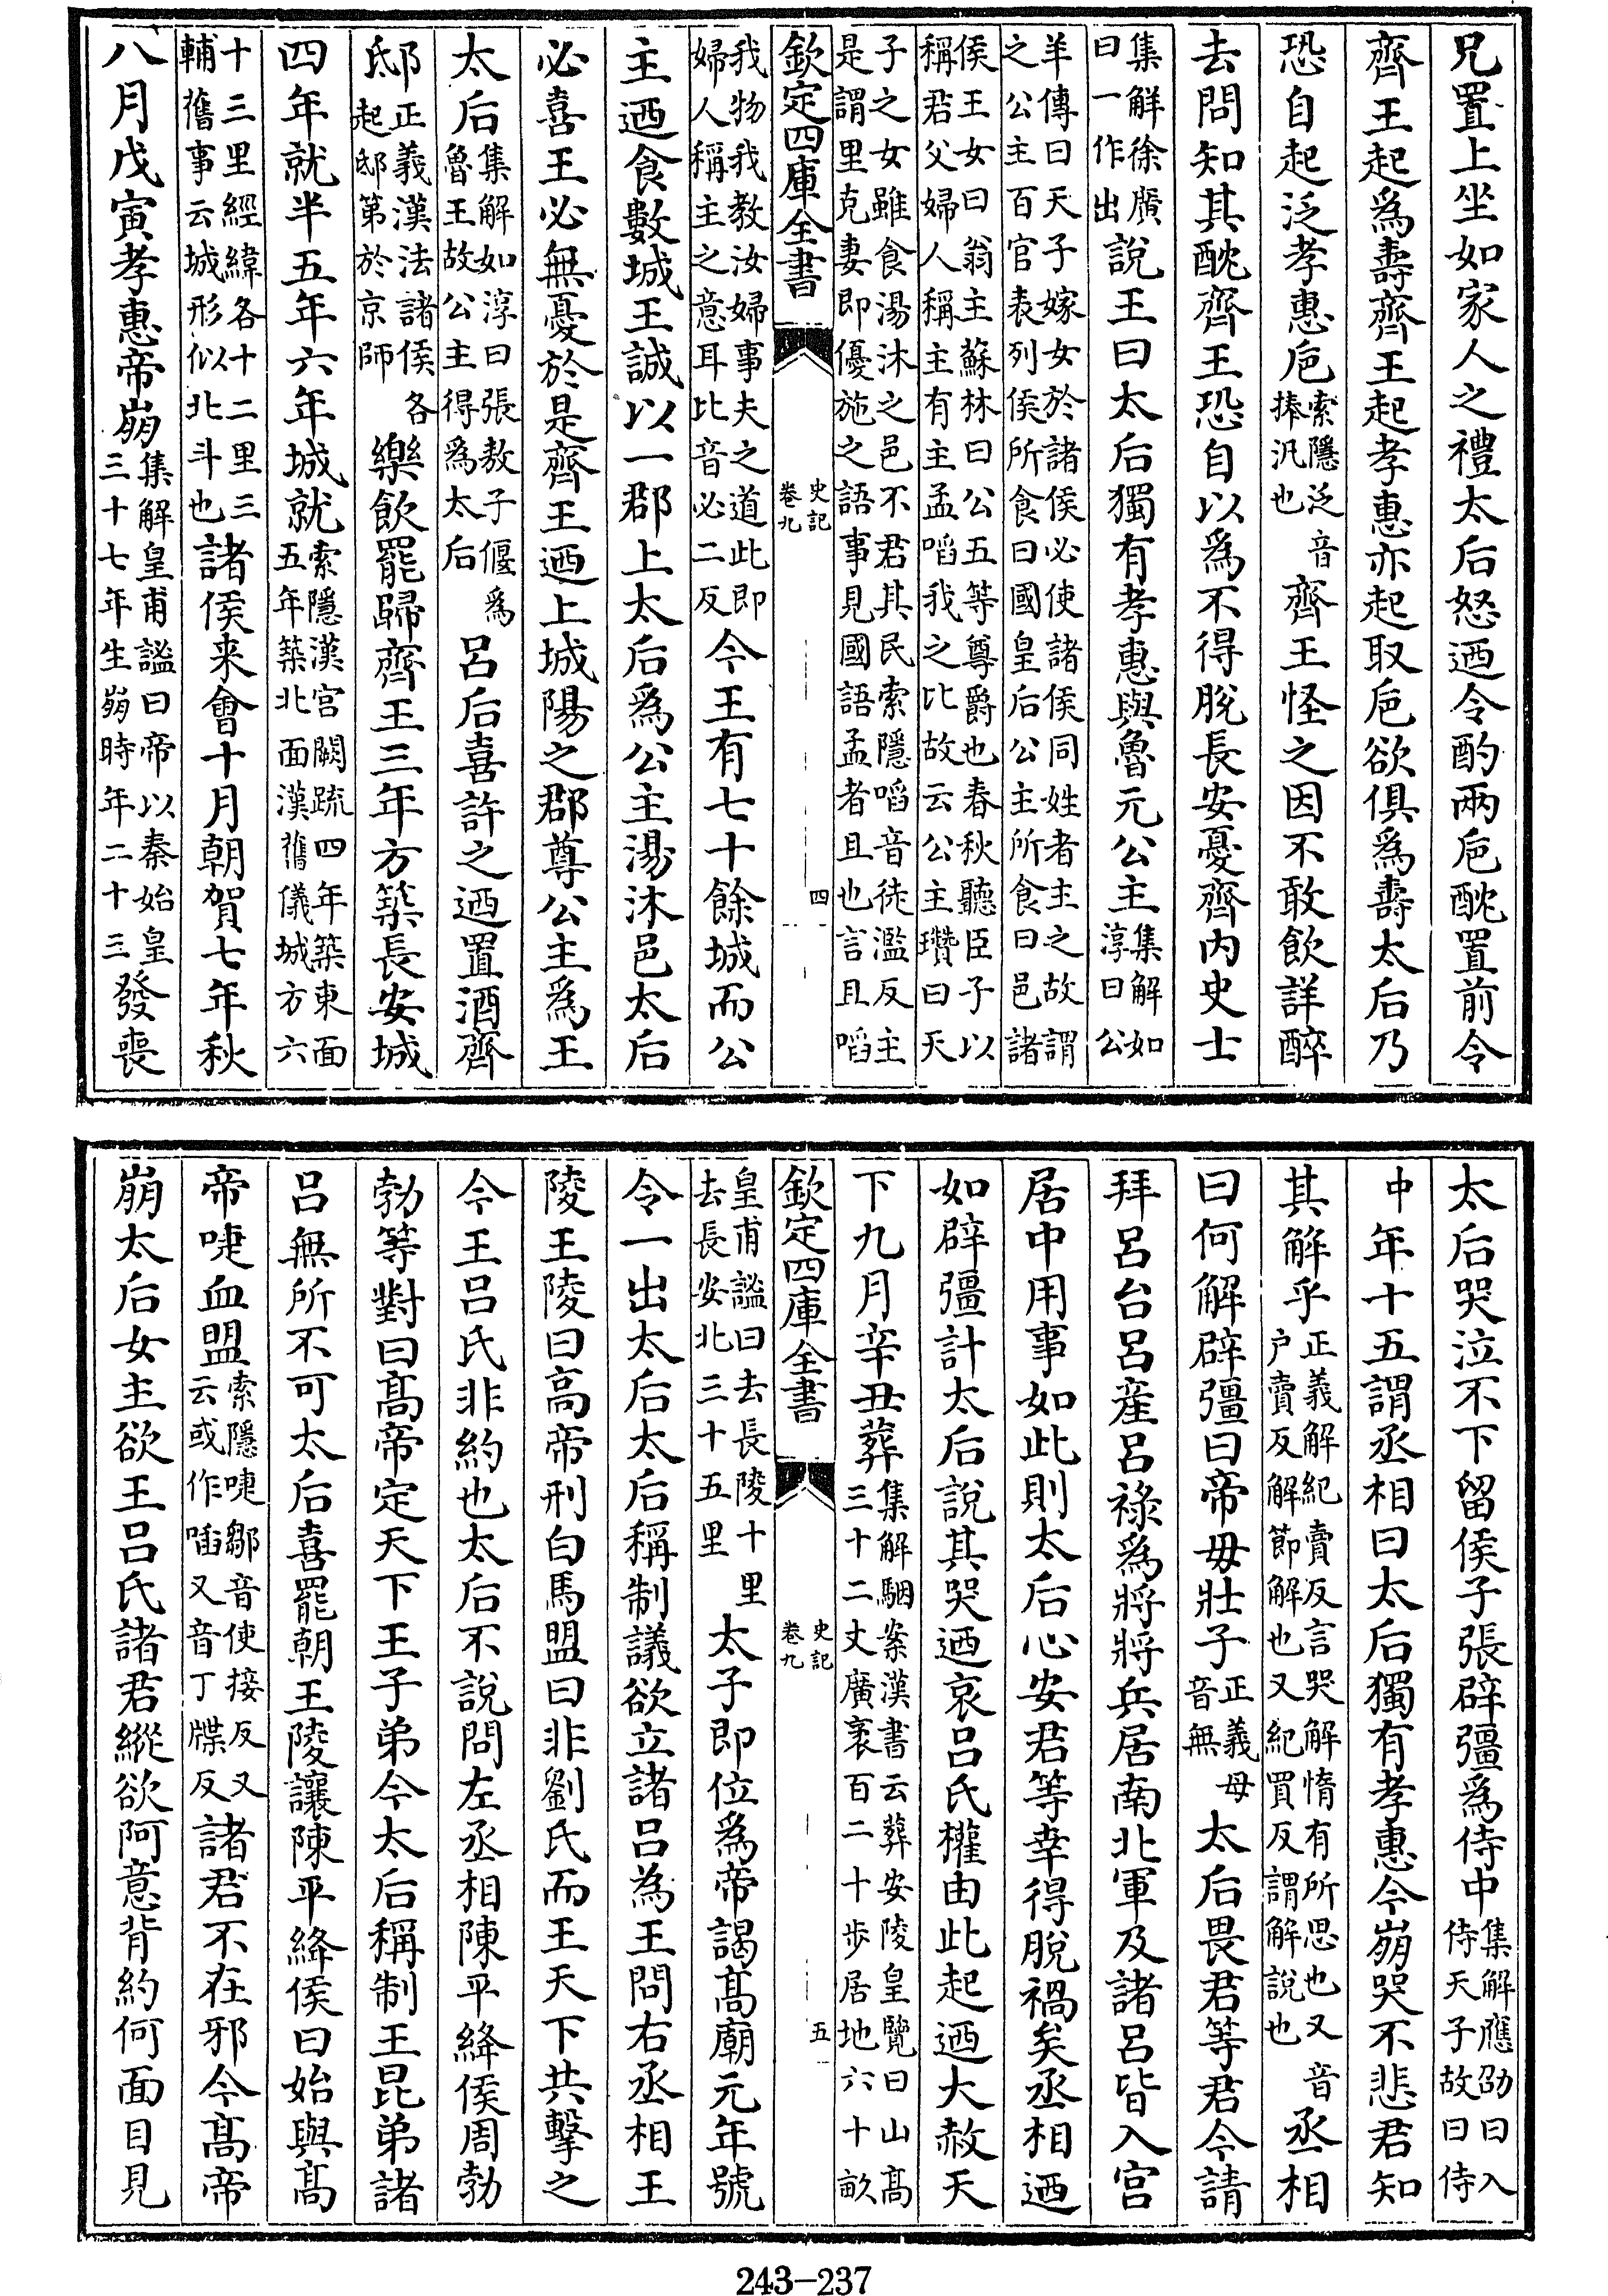 兄置上坐如家人之禮太后怒廼令酌兩巵酖置前令
齊王起爲壽齊王起孝惠亦起取巵欲俱爲壽太后乃
恐自起泛孝惠巵索隱泛音捧汎也齊王怪之因不敢飲詳醉
去問知其酖齊王恐自以爲不得脫長安憂齊内史士
集解徐廣曰一作出說王曰太后獨有孝惠與魯元公主集解如淳曰公
羊傳曰天子嫁女於諸侯必使諸侯同姓者主之故謂
之公主百官表列侯所食曰國皇后公主所食曰邑諸
侯王女曰翁主蘇林曰公五等尊爵也春秋聽臣子以
稱君父婦人稱主有主孟啗我之比故云公主瓚曰天
子之女雖食湯沐之邑不君其民索隱啗音徒濫反主
是謂里克妻即優施之語事見國語孟者且也言且啗
欽定四庫全書 史記卷九 四
我物我教汝婦事夫之道此即婦人稱主之意耳比音必二反今王有七十餘城而公
主廼食數城王誠以一郡上太后爲公主湯沐邑太后
必喜王必無憂於是齊王廼上城陽之郡尊公主爲王
太后集解如淳曰張敖子偃爲魯王故公主得爲太后呂后喜許之廼置酒齊
邸正義漢法諸侯各起邸第於京師樂飲罷歸齊王三年方築長安城
四年就半五年六年城就索隱漢宮闕疏四年築東面五年築北面漢舊儀城方六
十三里經緯各十二里三輔舊事云城形似北斗也諸侯来會十月朝賀七年秋
八月戊寅孝惠帝崩集解皇甫謐曰帝以秦始皇三十七年生崩時年二十三發喪
太后哭泣不下留侯子張辟彊爲侍中集解應劭曰入侍天子故曰侍
中年十五謂丞相曰太后獨有孝惠今崩哭不悲君知
其解乎正義解紀賣反言哭解惰有所思也又音户賣反解節解也又紀買反謂解說也丞相
曰何解辟彊曰帝毋壯子正義毋音無太后畏君等君今請
拜呂台呂産呂祿爲將將兵居南北軍及諸呂皆入宮
居中用事如此則太后心安君等幸得脫禍矣丞相廼
如辟彊計太后說其哭廼哀呂氏權由此起廼大赦天
下九月辛丑葬集解駰案漢書云葬安陵皇覽曰山髙三十二丈廣袤百二十步居地六十畝
欽定四庫全書 史記卷九 五
皇甫謐曰去長陵十里去長安北三十五里太子即位爲帝謁髙廟元年號
令一出太后太后稱制議欲立諸呂為王問右丞相王
陵王陵曰高帝刑白馬盟曰非劉氏而王天下共擊之
今王呂氏非約也太后不說問左丞相陳平絳侯周勃
勃等對曰髙帝定天下王子弟今太后稱制王昆弟諸
呂無所不可太后喜罷朝王陵讓陳平絳侯曰始與髙
帝啑血盟索隱啑鄒音使接反又云或作啗又音丁牒反諸君不在邪今髙帝
崩太后女主欲王呂氏諸君縱欲阿意背約何面目見
243-237